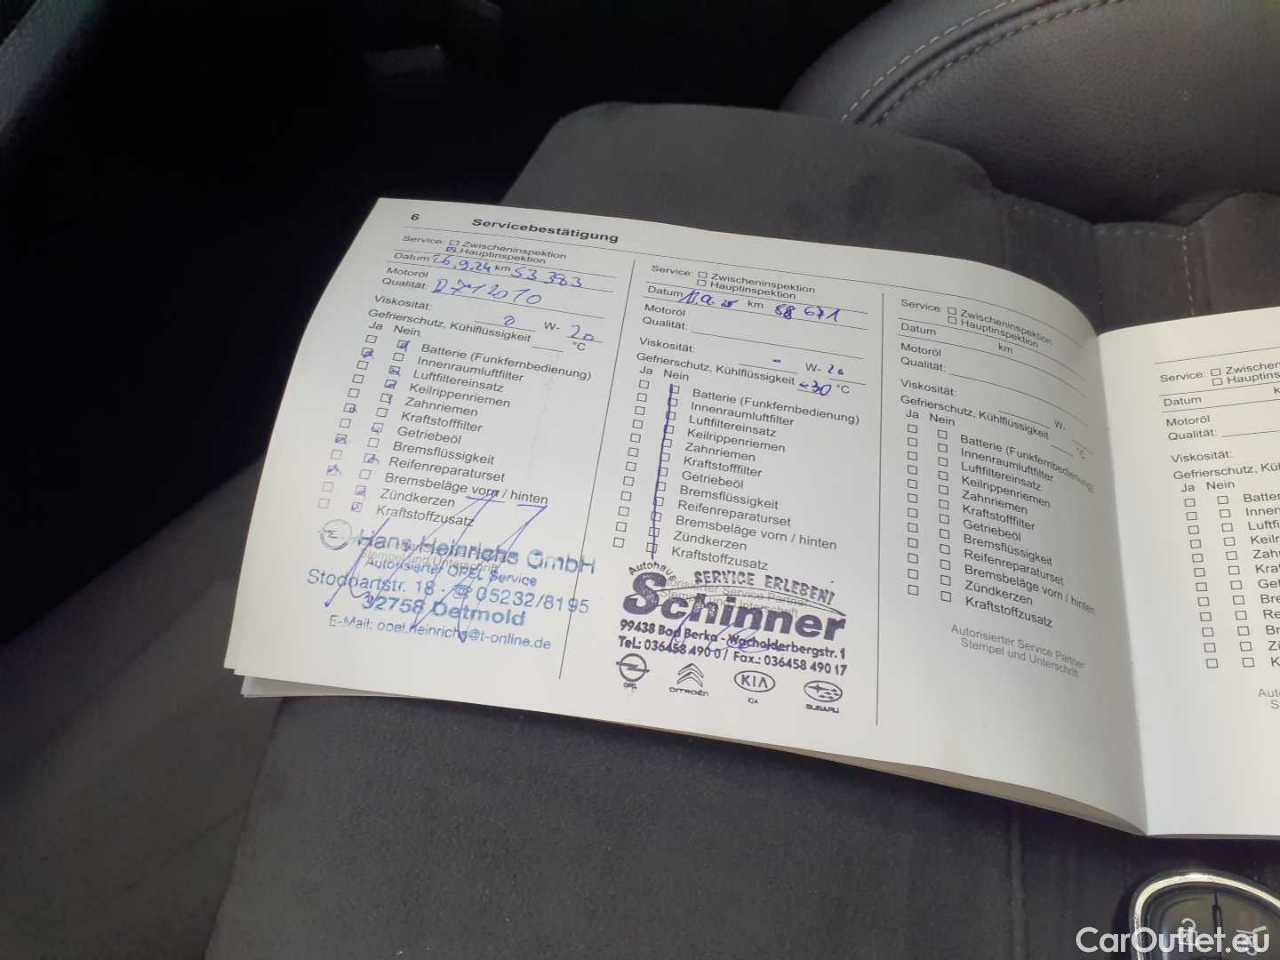 6 Servicebestätigung
Service: Zwischeninspektion
Hauptinspektion
Datum 26.9.24 km 53 383
Motoröl
Qualität: D712010
Viskosität: 0 W- 20
Gefrierschutz, Kühlflüssigkeit °C
Ja Nein
Batterie (Funkfernbedienung)
Innenraumluftfilter
Luftfiltereinsatz
Keilrippenriemen
Zahnriemen
Kraftstofffilter
Getriebeöl
Bremsflüssigkeit
Reifenreparaturset
Bremsbeläge vorn / hinten
Zündkerzen
Kraftstoffzusatz
Hans Heinrichs GmbH
Autorisierter OPEL Service
Stoddartstr. 18 - ☎ 05232/8195
32758 Detmold
E-Mail: opel.heinrichs@t-online.de
Service: Zwischeninspektion
Hauptinspektion
Datum km 58 671
Motoröl
Qualität:
Viskosität: - W- 20
Gefrierschutz, Kühlflüssigkeit -30 °C
Ja Nein
Batterie (Funkfernbedienung)
Innenraumluftfilter
Luftfiltereinsatz
Keilrippenriemen
Zahnriemen
Kraftstofffilter
Getriebeöl
Bremsflüssigkeit
Reifenreparaturset
Bremsbeläge vorn / hinten
Zündkerzen
Kraftstoffzusatz
Autohaus SERVICE ERLEBEN!
Schinner
99438 Bad Berka - Wacholderbergstr. 1
Tel.: 036458 490 0 / Fax.: 036458 490 17
OPEL CITROËN KIA SUBARU
Service: Zwischeninspektion
Hauptinspektion
Datum km
Motoröl
Qualität:
Viskosität: W-
Gefrierschutz, Kühlflüssigkeit °C
Ja Nein
Batterie (Funkfernbedienung)
Innenraumluftfilter
Luftfiltereinsatz
Keilrippenriemen
Zahnriemen
Kraftstofffilter
Getriebeöl
Bremsflüssigkeit
Reifenreparaturset
Bremsbeläge vorn / hinten
Zündkerzen
Kraftstoffzusatz
Autorisierter Service Partner
Stempel und Unterschrift
Service: Zwischeninsp
Hauptinspekt
Datum
Motoröl
Qualität:
Viskosität:
Gefrierschutz, Kühl
Ja Nein
Batter
Innen
Luft
Keil
Zah
Kra
Ge
Bre
Re
Br
Zü
K
Aut
S
CarOutlet.eu